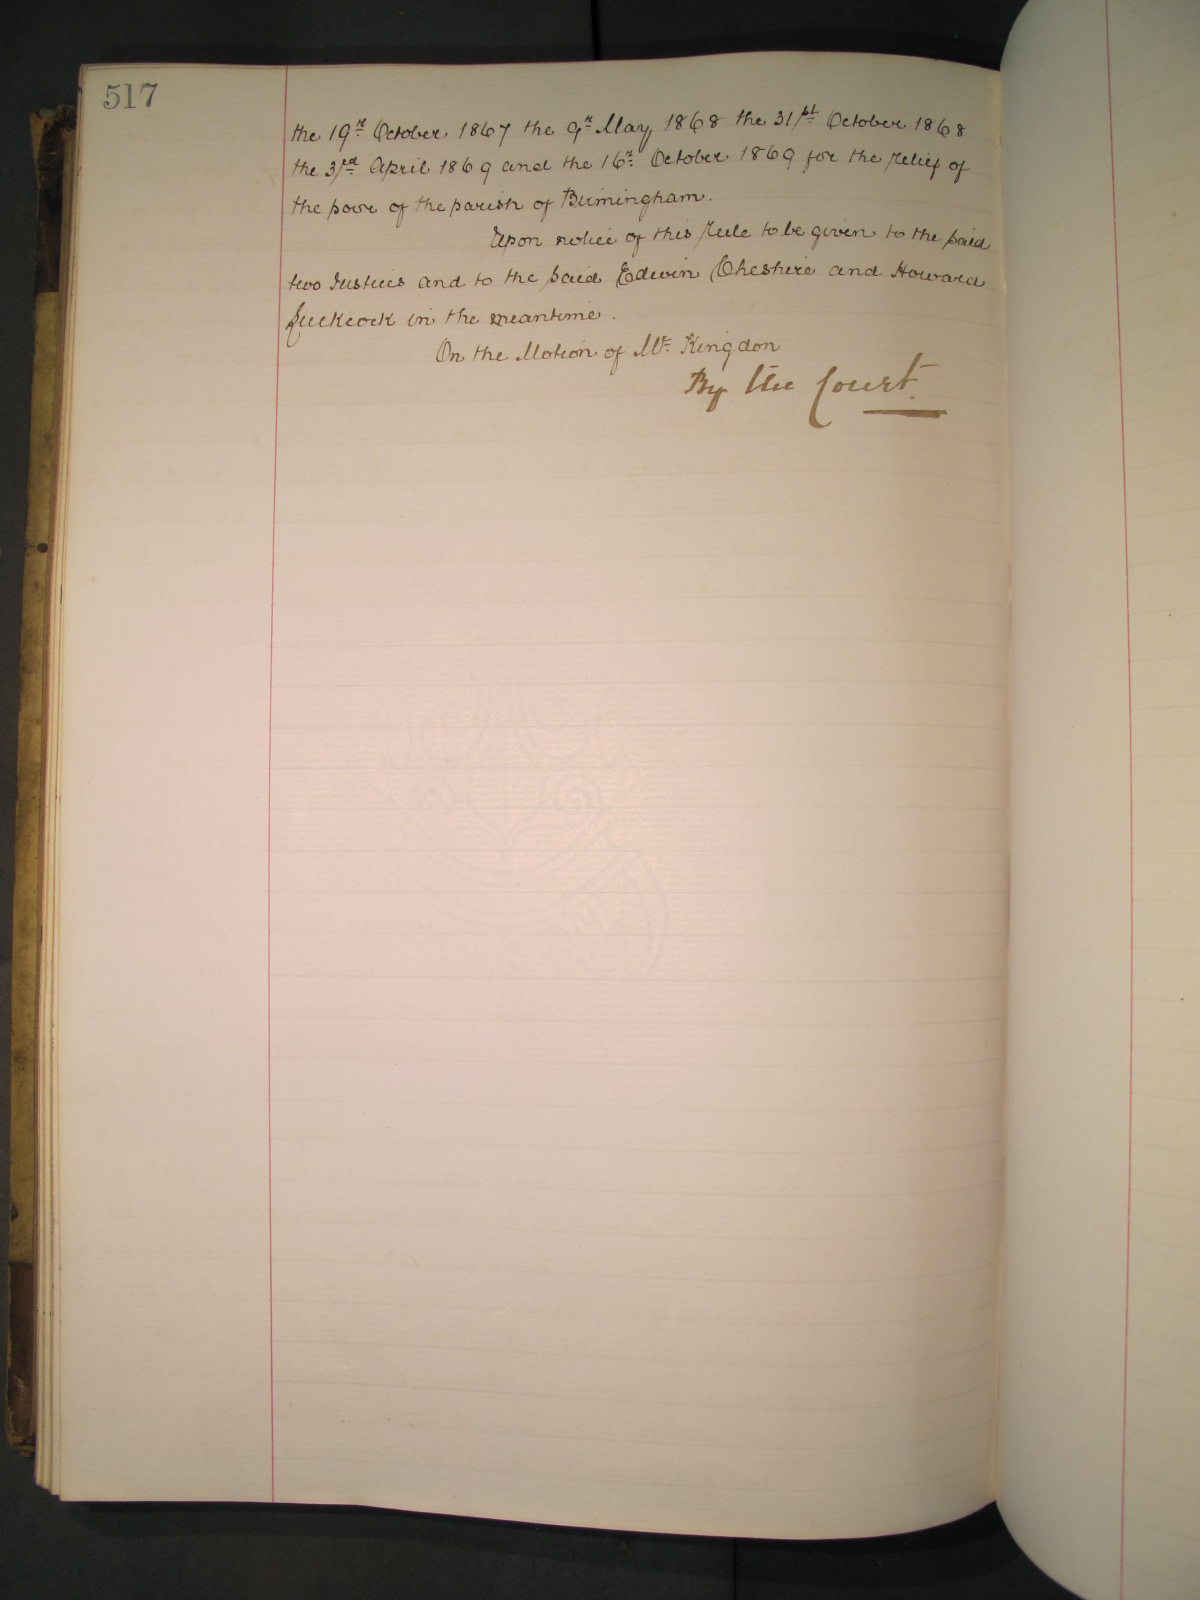 517
the 19th October 1867 the 9th May 1868 the 31st October 1868
the 3rd April 1869 and the 16th October 1869 for the relief of
the poor of the parish of Birmingham.
Upon notice of this Rule to be given to the said
two Justices and to the said Edwin Cheshire and Howard
Luckcock in the meantime.
On the Motion of Mr. Kingdon
By the Court.